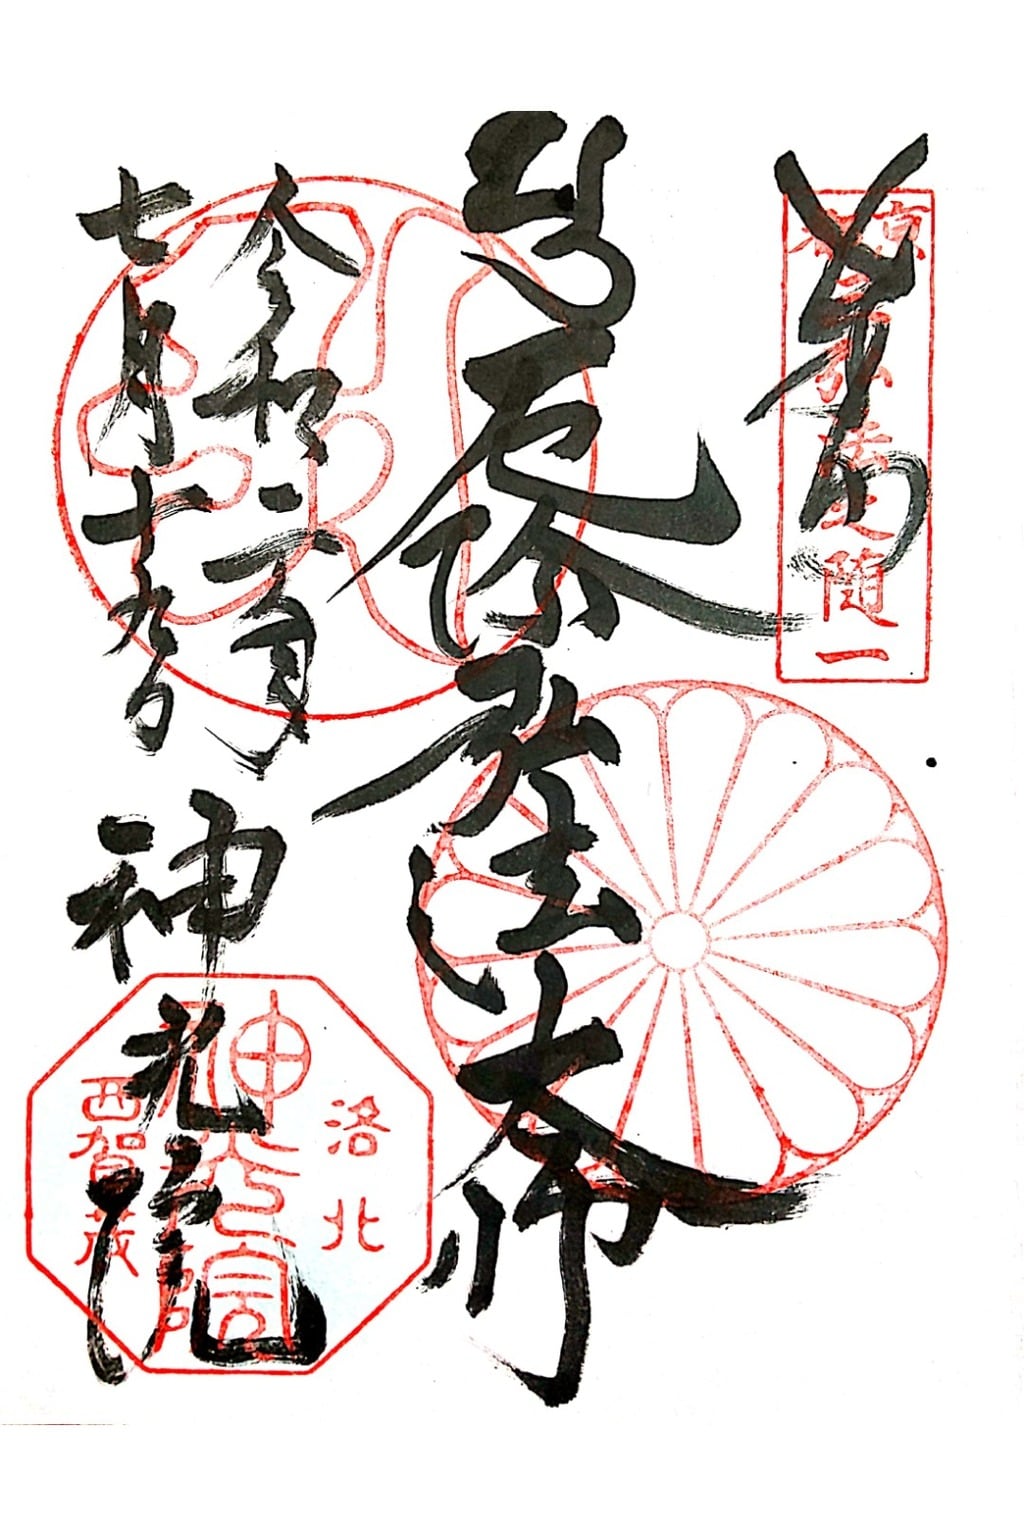 奉拝
京都三弘法之随一
厄除弘法大師
令和二年
七月十九日
神光院
洛北
神光院
西賀茂